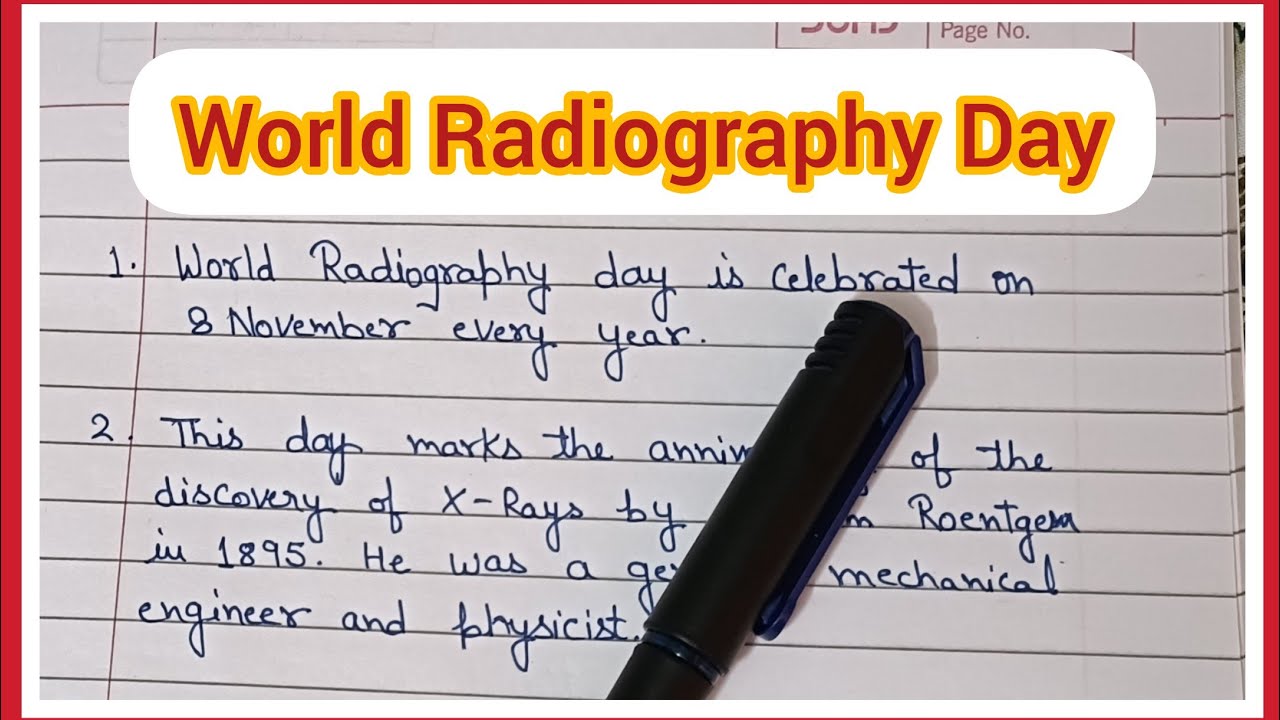 Page No.
World Radiography Day
1. World Radiography day is celebrated on
8 November every year.
2. This day marks the of the
discovery of X-Rays by Roentgen
in 1895. He was a mechanical
engineer and physicist.